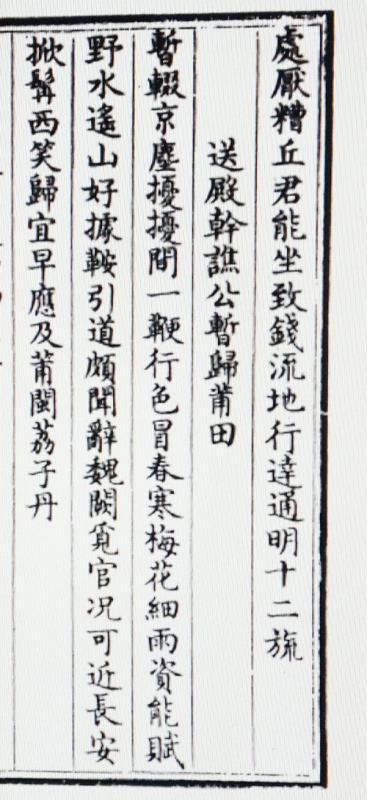 處厭糟丘君能坐致錢流地行達通明十二旒
送殿幹譙公暫歸莆田
暫輟京塵擾擾間一鞭行色冒春寒梅花細雨資能賦
野水遙山好據鞍引道頗聞辭魏闕覓官况可近長安
掀髯西笑歸宜早應及莆閩荔子丹